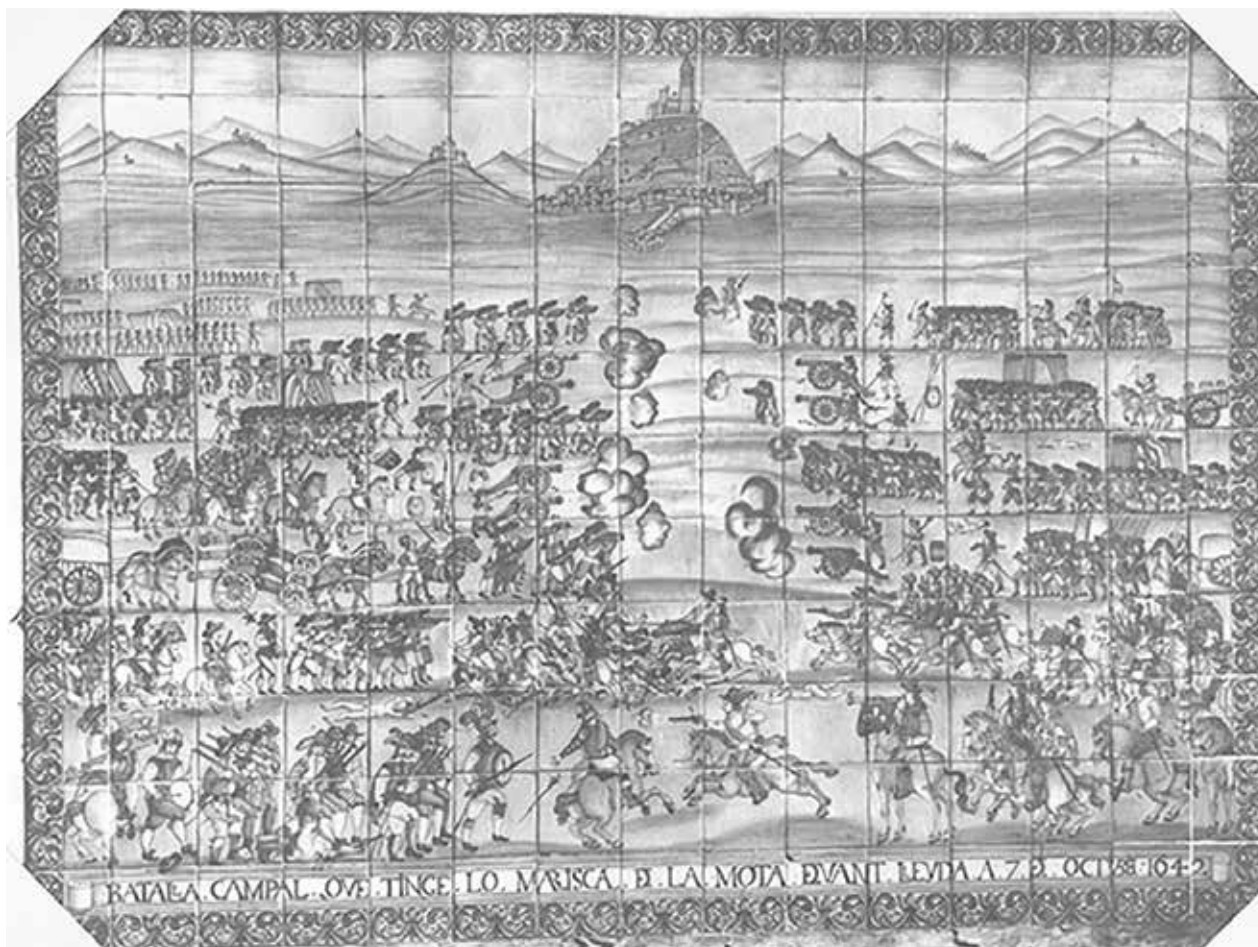 BATALLA CAMPAL . QVE . TINGE . LO . MARISCAL . D LA MOTA DVANT LLEYDA A 7 D OCTVBR . 1642